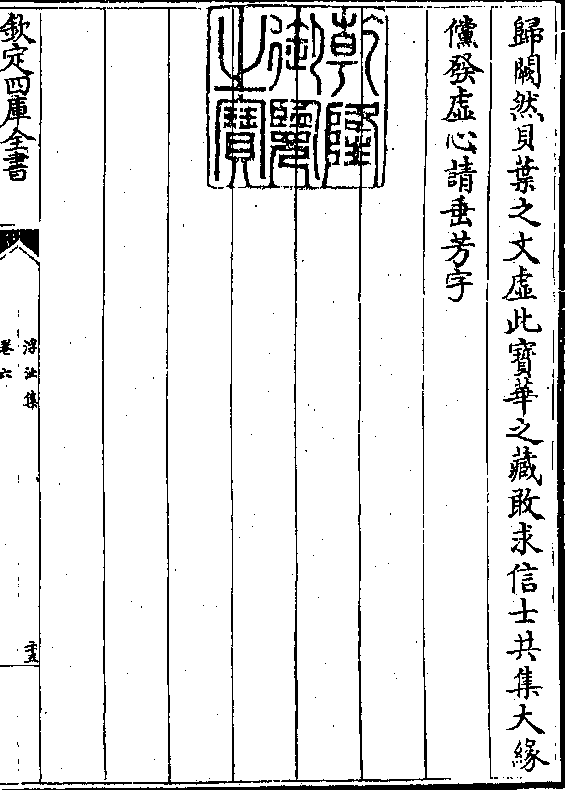 歸闕然貝葉之文虛此寶華之藏敢求信士共集大緣
儻發虛心請垂芳字
乾隆
御覽
之寶
欽定四庫全書
浮沚集
卷六
二十五